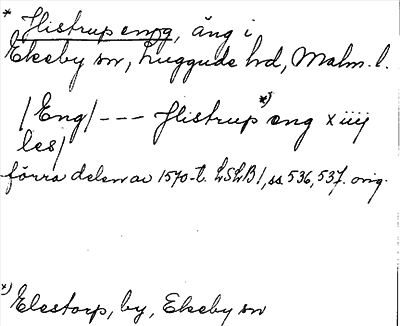 * Histrup eng, äng i
Ekeby sn, Luggude hd, Malm. l.
/Eng/ --- Histrup *) eng x iiij
les/
förra delen av 1570-t. LSLB 1, ss 536, 537. orig.
*) Elestorp, by, Ekeby sn